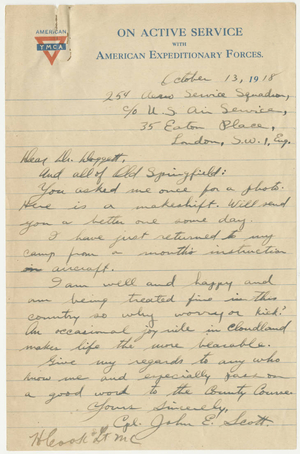 AMERICAN
YMCA
ON ACTIVE SERVICE
WITH
AMERICAN EXPEDITIONARY FORCES.
October 13, 1918
254 Aero Service Squadron,
c/o U.S. Air Service,
35 Eaton Place,
London, S.W.1, Eng.
Dear Dr. Doggett,
And all of Old Springfield:
You asked me once for a photo.
Here is a makeshift. Will send
you a better one some day.
I have just returned to my
camp from a month's instruction
on aircraft.
I am well and happy and
am being treated fine in this
country so why worry or kick?
An occasional joy ride in cloudland
makes life the more bearable.
Give my regards to any who
know me and especially pass on
a good word to the County Course.
Yours Sincerely,
Cpl. John E. Scott.
H Cook Lt M.C.